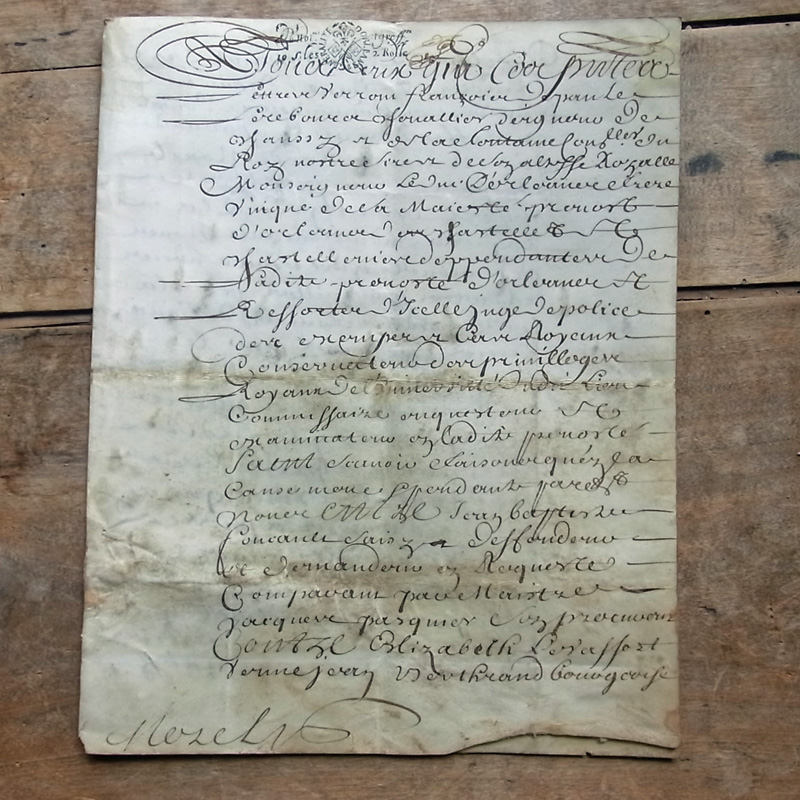 A Tous Ceux qui Ces presentes
Lettres verront françois de paule
Lrebours chevallier seigneur de
chaussy et de la fontaine Con.ller du
Roy nostre sire et de son altesse Royalle
Monseigneur Le Duc D'orleans frere
Vnique de sa Maiesté prevost
d'orleans et
chastellenies deppendantes de
Ladite prevosté d'orleans et
Ressortes d'Icelle juge de police
des exempts et Cas Royaux
Conservateur des privilleges
Royaux de L'université dudit Lieu
Commissaire enquesteur et
examinateur en Ladite prevosté
Salut scavoir faisons qu'en La
Cause meue et pendante pardt
Nous Entre Jean baptiste
Foucault deffendeur
et demandeur en Requeste
Comparant par Maistre
Jacques pasquier son procureur
Contre Elizabeth Levassort
Veufve jean Berthrand bourgeoise